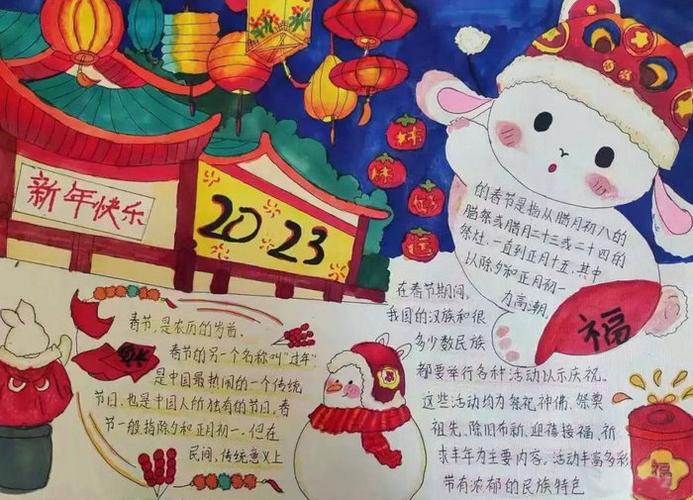 新年快乐
2023
春节,是农历的岁首,
春节的另一个名称叫"过年"
是中国最热闹的一个传统
节日,也是中国人所独有的节日。春
节一般指除夕和正月初一,但在
民间,传统意义上
的春节是指从腊月初八的
腊祭或腊月二十三或二十四的
祭灶,一直到正月十五,其中
以除夕和正月初一
为高潮。
在春节期间,
我国的汉族和很
多少数民族
都要举行各种活动以示庆祝。
这些活动均为祭祀神佛、祭奠
祖先、除旧布新、迎禧接福、祈
求丰年为主要内容。活动丰富多彩
带有浓郁的民族特色
福
福